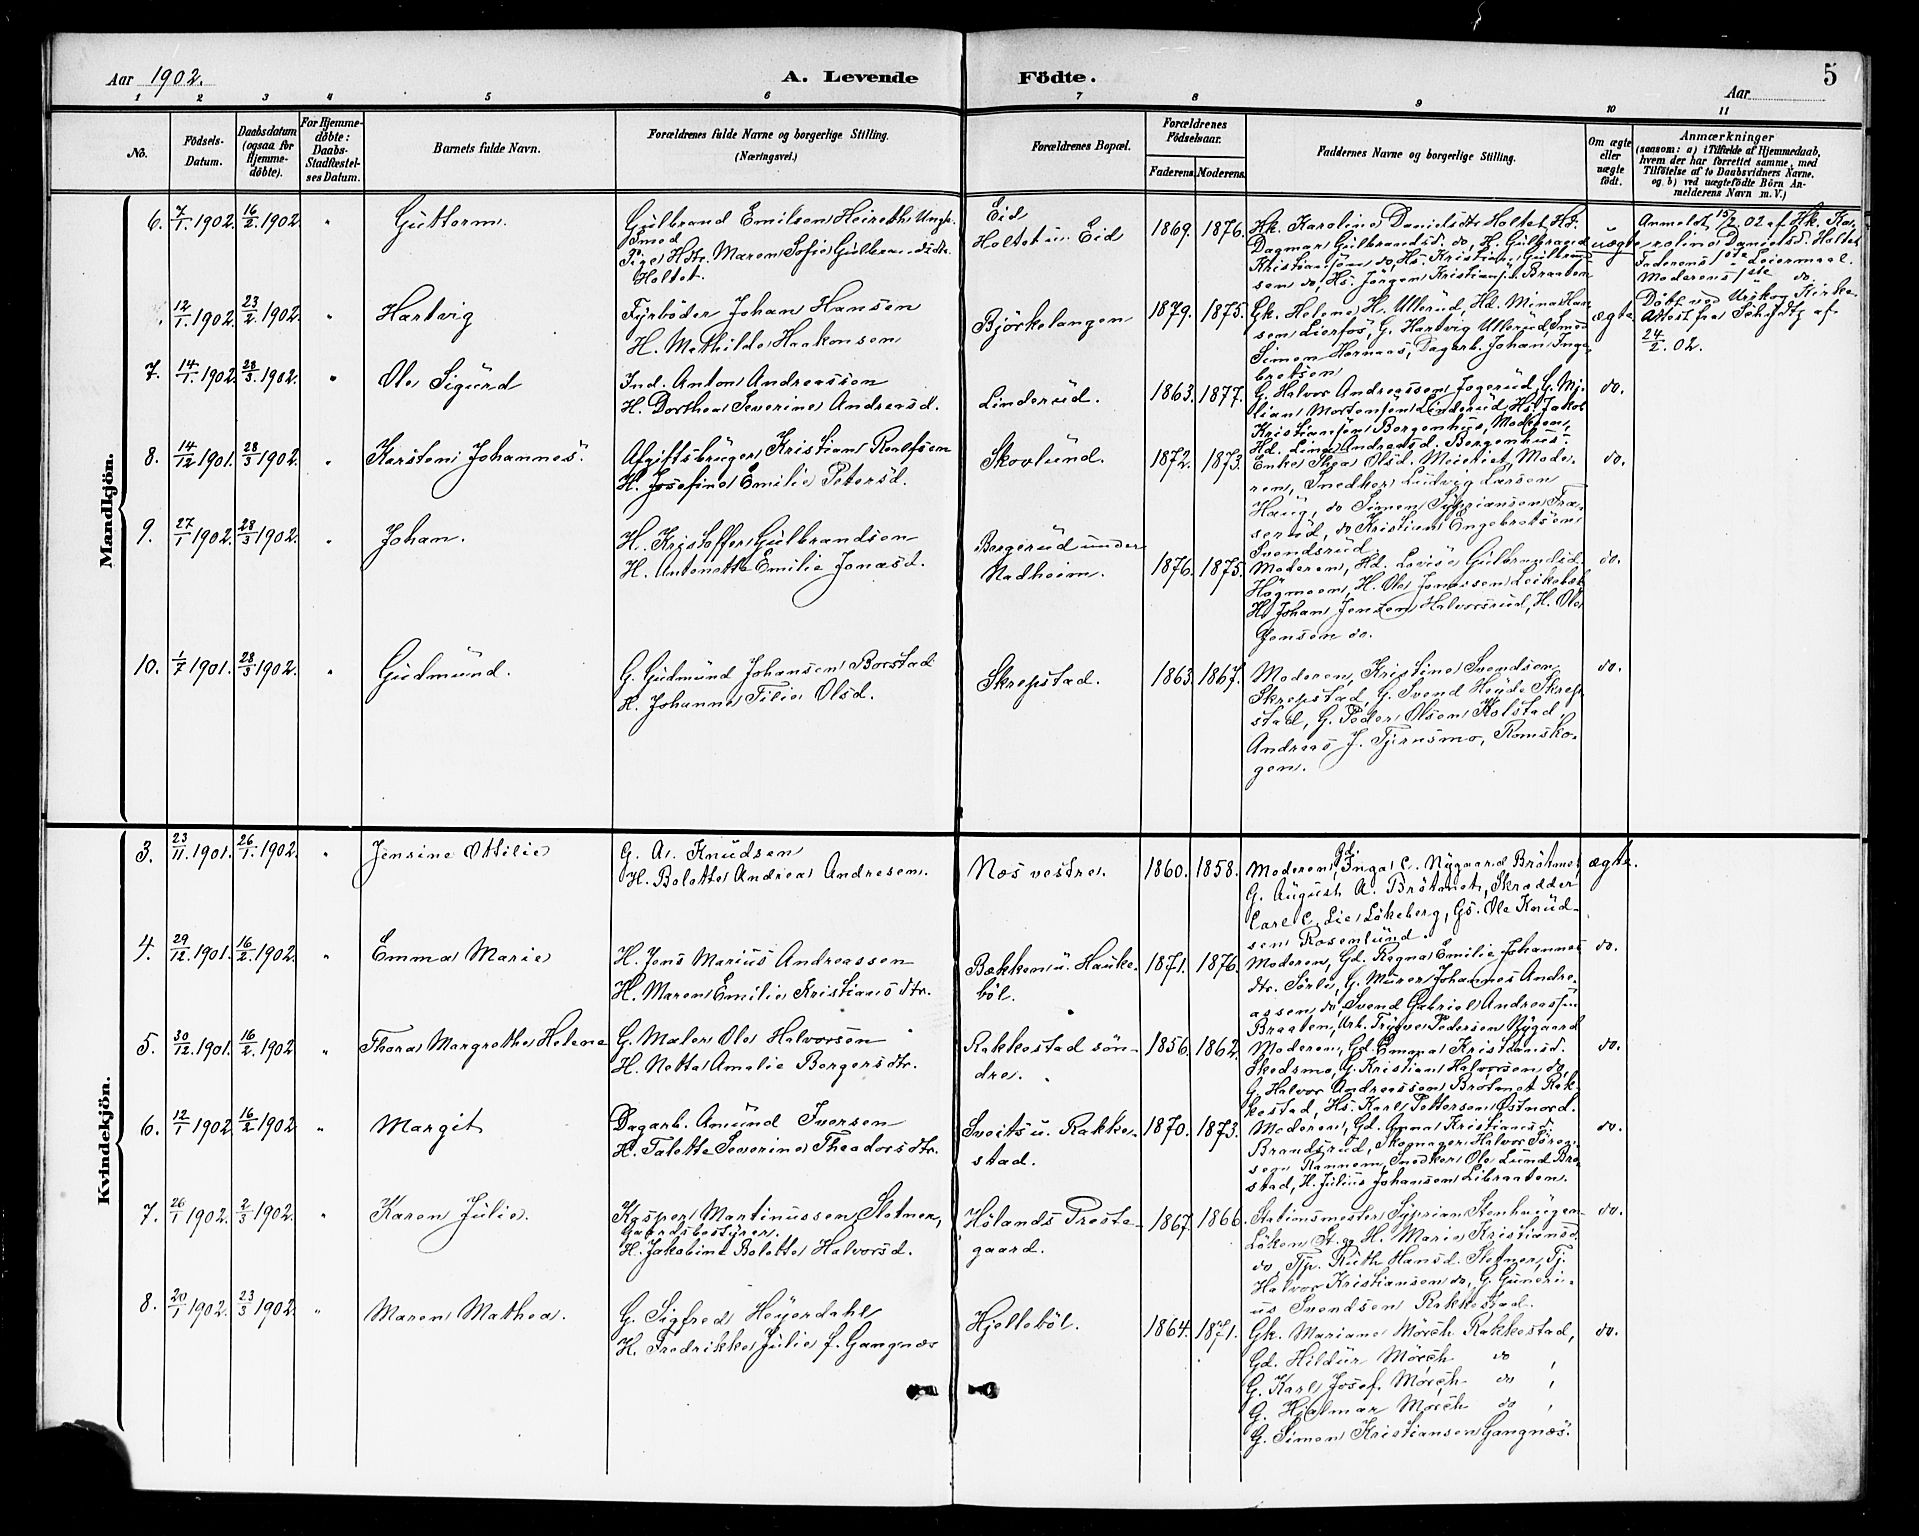 Aar 1902.
A. Levende Födte.
5
Aar
1 2 3 4 5 6 7 8 9 10 11
No.
Födsels-Datum.
Daabsdatum (ogsaa for Hjemme-døbte).
For Hjemme-døbte: Daabs-Stadfæstel-ses Datum.
Barnets fulde Navn.
Forældrenes fulde Navne og borgerlige Stilling. (Næringsvei.)
Forældrenes Bopæl.
Forældrenes Födselsaar.
Faderens. Moderens.
Faddernes Navne og borgerlige Stilling.
Om ægte eller uægte født.
Anmærkninger
(saasom: a) i Tilfælde af Hjemmedaab,
hvem der har forrettet samme, med
Tilföielse af to Daabsvidners Navne.
og b) ved uægtefödte Börn An-
melderens Navn m. V.)
Mandkjön.
6. 7/1 1902. 16/2 1902. " Guttorm.
Gulbrand Emilsen Heireth Ungk.
Smed
Pige Hdtr. Maren Sofie Gulbrandsdtr.
Holtet.
Eid
Holtet u. Eid
1869. 1876.
Hk. Karoline Danielsdtr Holtet, Hd.
Dagmar Gulbrandsd. do, H. Gulbrand
Kristiansen do, Hs. Kristian Gulbrand
sen do, Hs. Jörgen Kristians. Braaten
uægte
Anmeldt 15/2 02 af Hk. Ka-
roline Danielsd. Holtet
Faderens 1ste Leiermaal.
Moderens 1ste do.
12/1 1902. 23/2 1902. " Hartvig
Fyrböder Johan Hansen
H. Mathilde Haakonsen
Björkelangen
1879. 1875.
Gk. Helene H. Ullerud, Hd. Mina Han
sen Lierfos, G. Hartvig Ullerud, Smed
Simen Hornaas, Dagarb. Johan Inge
bretsen
ægte
Döbt ved Urskog Kirke.
Attest fra Schjöth af
24/2. 02.
7. 14/1 1902. 28/3 1902. " Ole Sigurd
Ind. Anton Andreassen
H. Dorthea Severine Andreasd.
Linderud.
1863. 1877.
G. Halvor Andreassen Jogerud, G. Mi-
lian Mortensen Linderud, Hs. Jakob
Kristiansen Borgenhus, Moderen,
Hd. Lina Andreasd. Borgenhus.
do.
8. 14/12 1901. 28/3 1902. " Karsten Johannes.
Afgiftsbruger Kristian Rolfsen
H. Josefine Emilie Petersd.
Skovlund.
1872. 1873.
Enke Thea Olsd. Meieriet, Mode-
ren, Snedker Ludvig Larsen
Haug, do Simen Sypriansen Fra-
serud, do Kristian Engebretsen
Svendsrud.
do.
9. 27/1 1902. 28/3 1902. " Johan.
H. Kristoffer Gulbrandsen
H. Antonette Emilie Jonasd.
Borgerud under
Nadheim.
1876. 1875.
Moderen, Hd. Lovise Gulbrandsd.
Högmoen, H. Ole Jonassen
H. Johan Jensen Halvorsrud, H. Ole
Jensen do.
do.
10. 1/7 1901. 28/3 1902. " Gudmund.
G. Gudmund Johansen Borstad
H. Johanne Tilie Olsd.
Skrepstad.
1863. 1867.
Moderen, Kristine Svendsen
Skrepstad, G. Svend Heyde Skrep-
stad, G. Peder Olsen Kolstad,
Andreas J. Tjernsmo, Romsko-
gen.
do.
Kvindekjön.
3. 23/11 1901. 26/1 1902. " Jensine Ottilie
G. A. Knudsen
H. Bolette Andrea Andresen.
Næs vestre.
1860. 1858.
Moderen, Gd. Inga C. Nygaard Bråtnes,
G. August A. Bråtenet, Skradder
Carl C. Lie Lökeberg, Gs. Ole Knud-
sen Rosenlund.
ægte.
4. 29/12 1901. 16/2 1902. " Emma Marie
H. Jens Marius Andreassen
H. Maren Emilie Kristiansdtr.
Bækken u. Hauke-
böl.
1871. 1876.
Moderen, Gd. Ragna Emilie Johannes
dtr. Sörli, G. Murer Johannes Andre-
assen do, Svend Gabriel Andreassen
Braaten, Arb. Trygve Pedersen Nygaard
do.
5. 30/12 1901. 16/2 1902. " Thora Margrethe Helene
G. Maler Ole Halvorsen
H. Netta Amalie Borgersdtr.
Rakkestad sön-
dre.
1856. 1862.
Moderen, Gd. Emma Kristiansd.
Skedsmo, G. Kristian Halvorsen do,
G. Halvor Andreassen Bråtenet Rak-
kestad, Hs. Karl Pettersen Östnord.
do.
6. 12/1 1902. 16/2 1902. " Margit
Dagarb. Amund Iversen
H. Talette Severine Theodorsdtr.
Sveits u. Rakke-
stad.
1870. 1873.
Moderen, Gd. Anna Kristiansd.
Brandsrud, Skogvager Halvor Törge-
sen Rannem, Snedker Ole Lund Bro-
stad, H. Julius Johansen Libraaten.
do.
7. 26/1 1902. 2/3 1902. " Karen Julie.
Kasper Martinussen Sletner,
Gaardsbestyrer.
H. Jakobine Bolette Halvorsd.
Hölands Preste-
gaard.
1867. 1866.
Stationsmester Syprian Stenhaugen
Löken St. og H. Marie Kristiansd.
do, Tjp. Ruth Hansd. Sletner, Tj.
Halvor Kristiansen do, G. Guneri-
us Svendsen Rakkestad.
do.
8. 20/1 1902. 23/3 1902. " Maren Mathea.
G. Sigfred Heyerdahl
H. Fredrikke Julie f. Gangnæs
Hjelleböl.
1864. 1871.
Gk. Mariane Mörch Rakkestad,
Gd. Hildur Mörch do ,
G. Karl Josef Mörch do ,
G. Hjalmar Mörch do ,
G. Simen Kristiansen Gangnæs.
do.